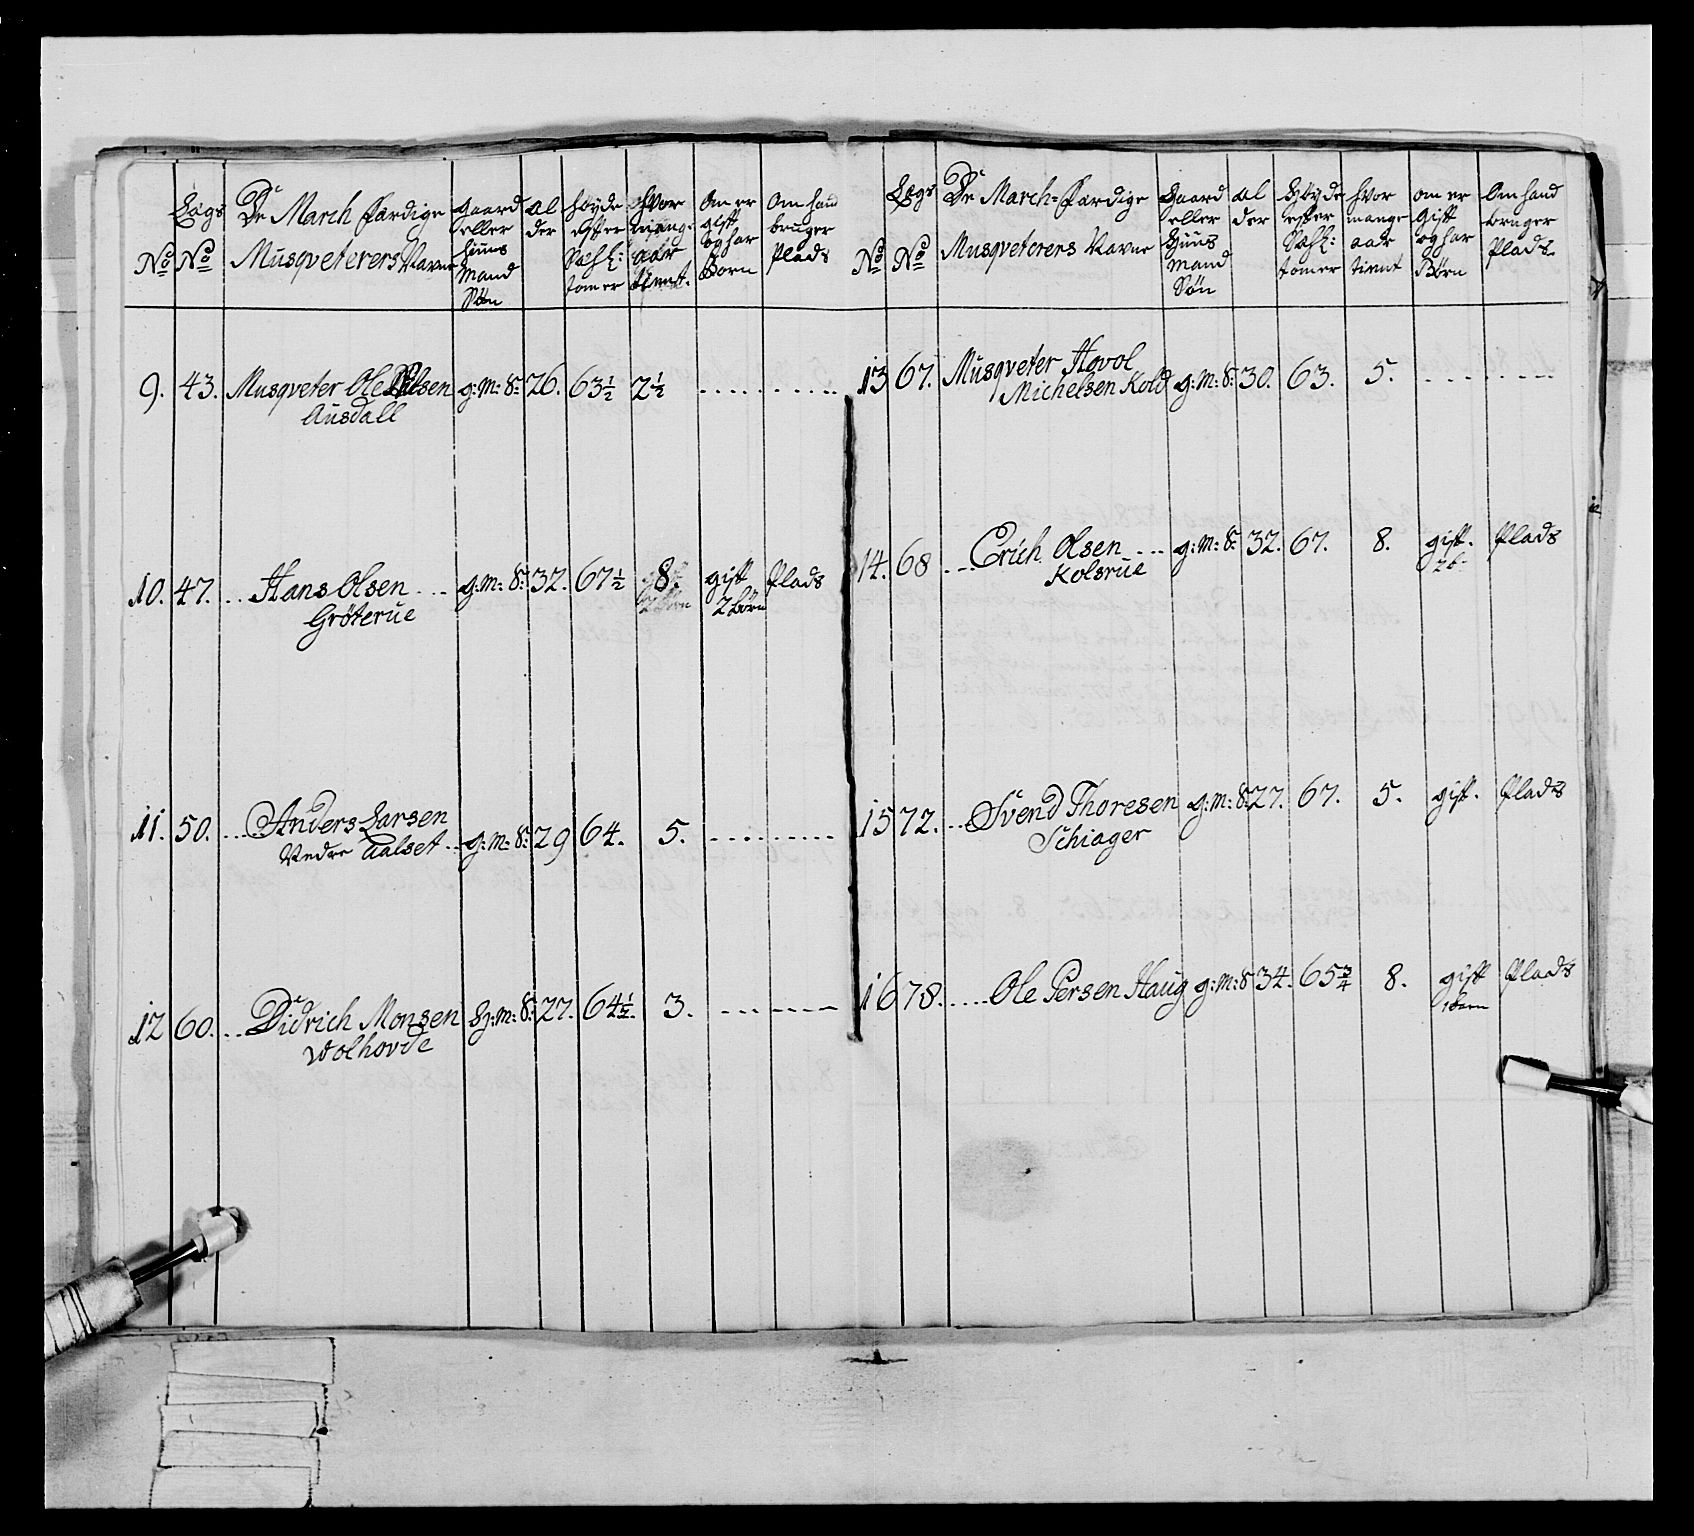 No
Lægs No
De March færdige Musqveterers Navne
gaard eller huus mand Søn
al der
høyde efter Sæhl: tommer
hvor mang: aar tient.
Om er gift og har Børn
Om hand bruger Plads
9. 43. Musqveter Ole Olsen g: m: S: 26. 63½ 2½
Ausdall
10. 47. Hans Olsen g: m: S: 32. 67½ 8. gift Plads
Grøterue 2 børn
11. 50. Anders Larsen
Nedre Aalset g: m: S: 29 64. 5.
12 60. Didrich Monsen H: m: S: 27. 64½. 3.
Wolhovde
No
Lægs No
De March-færdige Musqveterers Navne
Gaard eller Huus mand Søn
al der
Høyde efter Sæhl: tomer
hvor mange aar tient
om er Gift og har Børn
Om hand bruger Plads
13 67. Musqveter Hovol
Michelsen Kold g: m: S: 30. 63. 5.
14. 68 Erich Olsen g: m: S: 32. 67. 8. gift. Plads
Kolsrue 2b.
15 72. Svend Thoresen g: m: S: 27. 67. 5. gift. Plads
Schiager
16 78. Ole Persen Haug g: m: S 34. 65¾ 8. gift Plads
1 barn